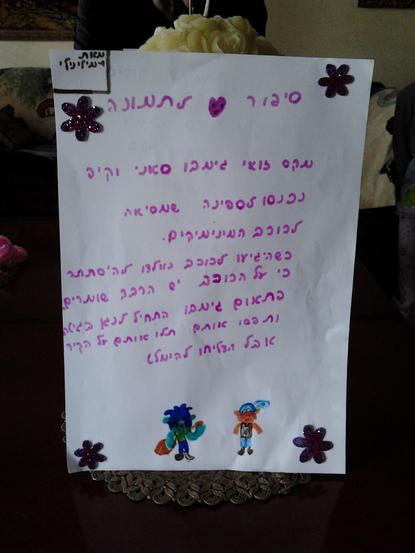 מאת
סיפור לתמונה
מקס זואי גימבו סאני וקיפ
נכנסו לספינה שמסיאה
לכוכב המינימיקים.
כשהיגיעו לכוכב נאלצו להיסתתר
כי על הכוכב יש הרבה שומרים
פתאום גימבו התחיל לנגן בגיטרה
ותפסו אותם תלו אותם על הקיר
אבל הצליחו להימלט